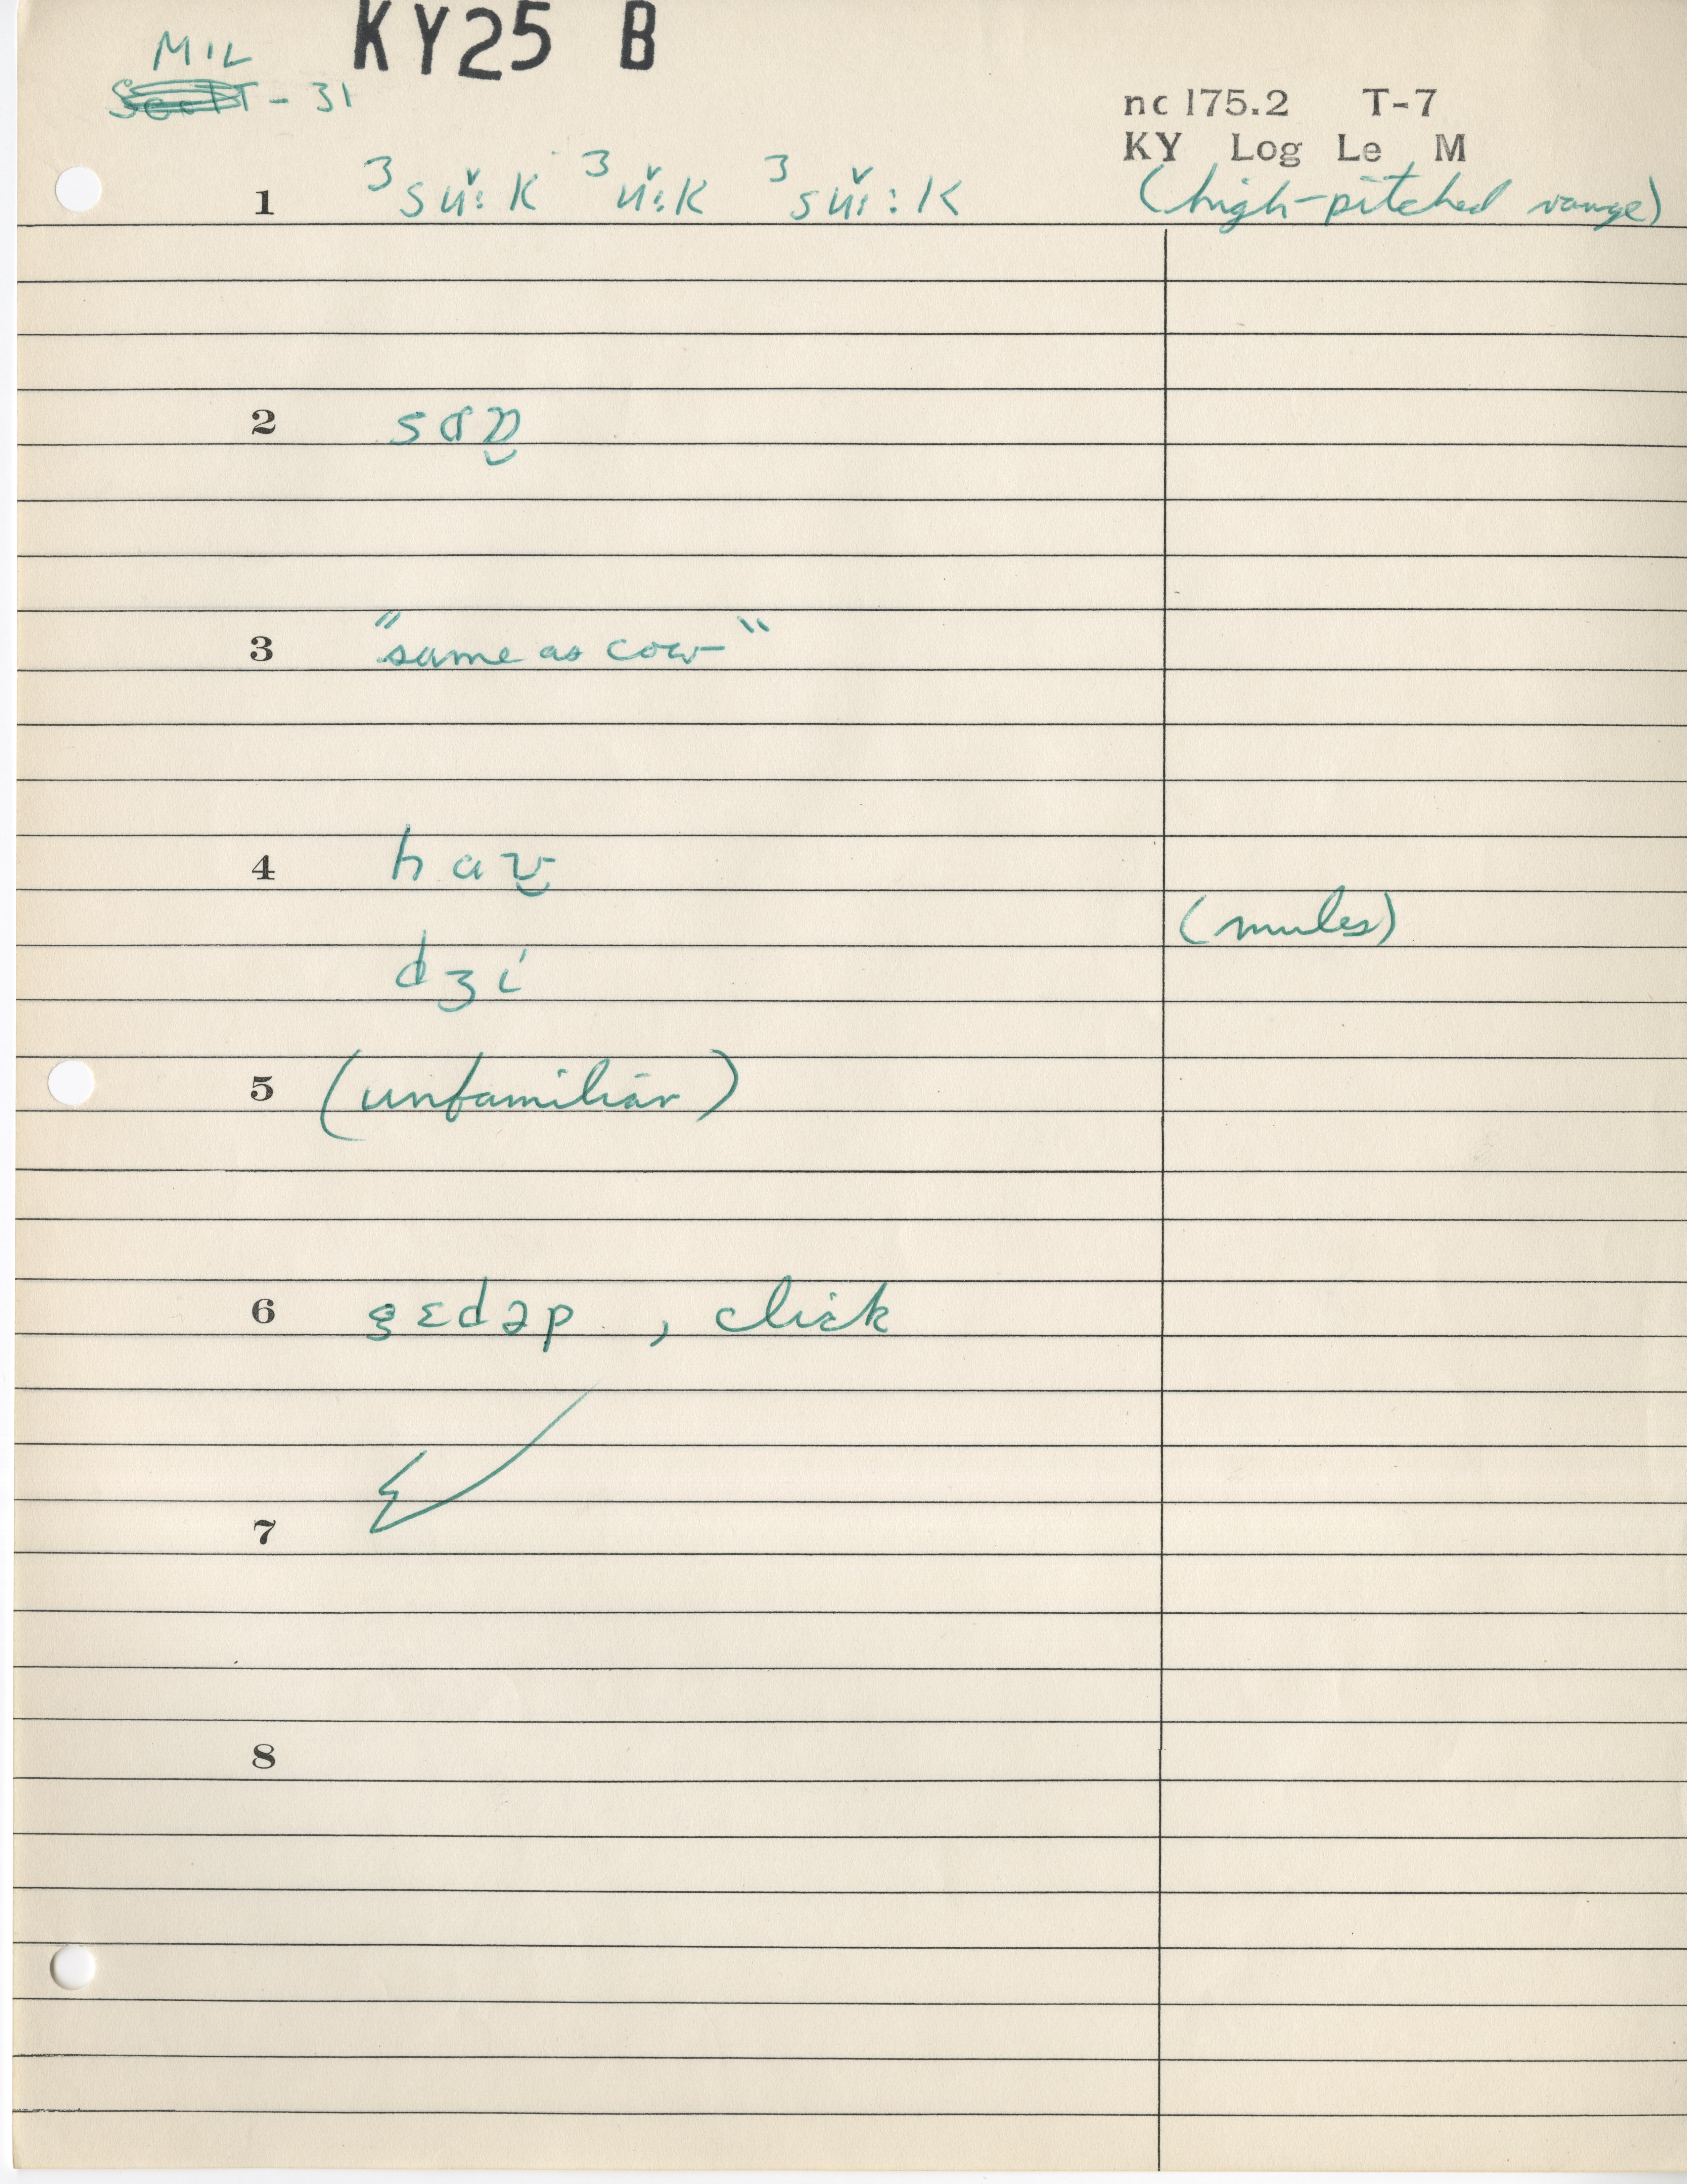 KY25 B
MIL
T-31
nc 175.2 T-7
KY Log Le M
1 ³sǚ:k ³ǚ:k ³sǚ:k (high-pitched range)
2 sɑɒ̯
3 "same as cow"
4 haʋ̯
(mules)
dʒi
5 (unfamiliar)
6 gɛdəp, click
7
8